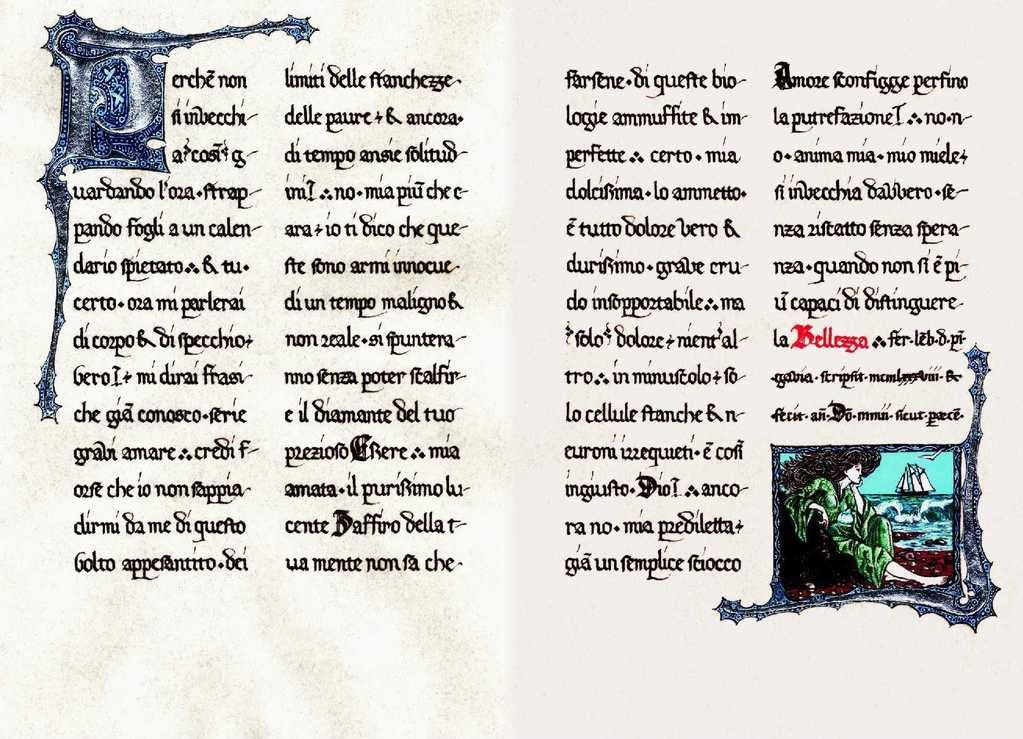 Perchè non
si invecchi-
a•così• g-
uardando l'ora•strap-
pando fogli a un calen-
dario spietato∴& tu•
certo•ora mi parlerai
di corpo & di specchio÷
vero!÷mi dirai frasi-
che già conosco•serie
gravi amare∴credi f-
orse che io non sappia-
dirmi da me di questo
volto appesantito•dei
limiti delle stanchezze-
delle paure÷& ancora•
di tempo ansie solitud-
ini!∴no•mia più che c-
ara÷io ti dico che que-
ste sono armi innocue-
di un tempo maligno &
non reale•si spuntera-
nno senza poter scalfir-
e il diamante del tuo
prezioso Essere∴mia
amata•il purissimo lu-
cente Zaffiro della t-
ua mente non sa che-
farsene•di queste bio-
logie ammuffite & im-
perfette∴certo•mia
dolcissima•lo ammetto•
è tutto dolore vero &
durissimo•grave cru-
do insopportabile∴ma
•solo• dolore÷nient'al-
tro∴in minuscolo÷so-
lo cellule stanche & n-
euroni irrequieti•è così
ingiusto•Dio!∴anco-
ra no•mia prediletta÷
già un semplice sciocco
Amore sconfigge perfino
la putrefazione!∴no•n-
o•anima mia•mio miele÷
si invecchia davvero•se-
nza riscatto senza spera-
nza•quando non si è pi-
ù capaci di distinguere-
la Bellezza∴fer•leb•d•pi-
gavia•scripsit•mcmlxxxviii•&•
fecit•añ•Dõ•mmii•sicut•parce•